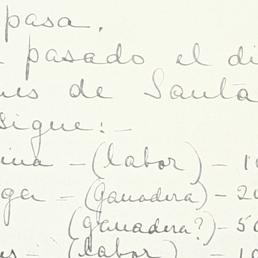 pasa.
pasado el di
es de Santa
sigue:-
ina - (labor) - 1
ga - (ganadera) - 20
(ganadera?) - 50
- (labor) - 10